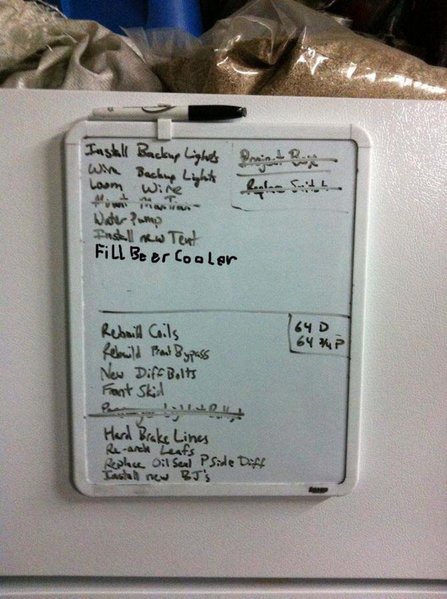 Install Backup Lights
Wire Backup Lights
Loom Wire
Mount
Water Pump
Install new Tent
Fill Beer Cooler
Project Box
Replace Switch
64 D
64 3/4 P
Rebuild Coils
Rebuild Bypass
New Diff Bolts
Front Skid
Hard Brake Lines
Re-arch Leafs
Replace Oil Seal P Side Diff
Install new BJ's